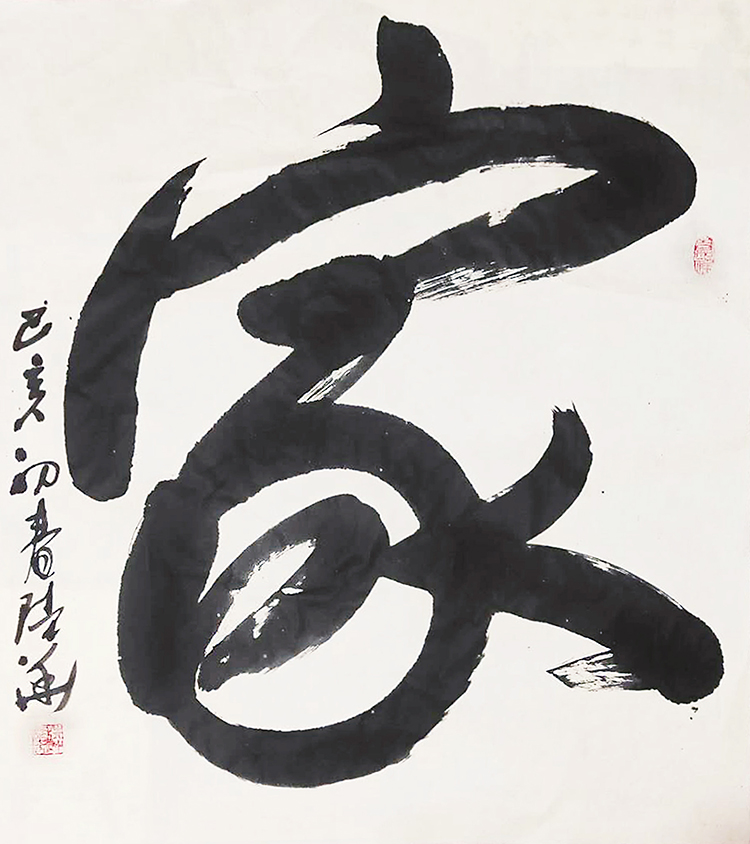 家
己亥初春陆海